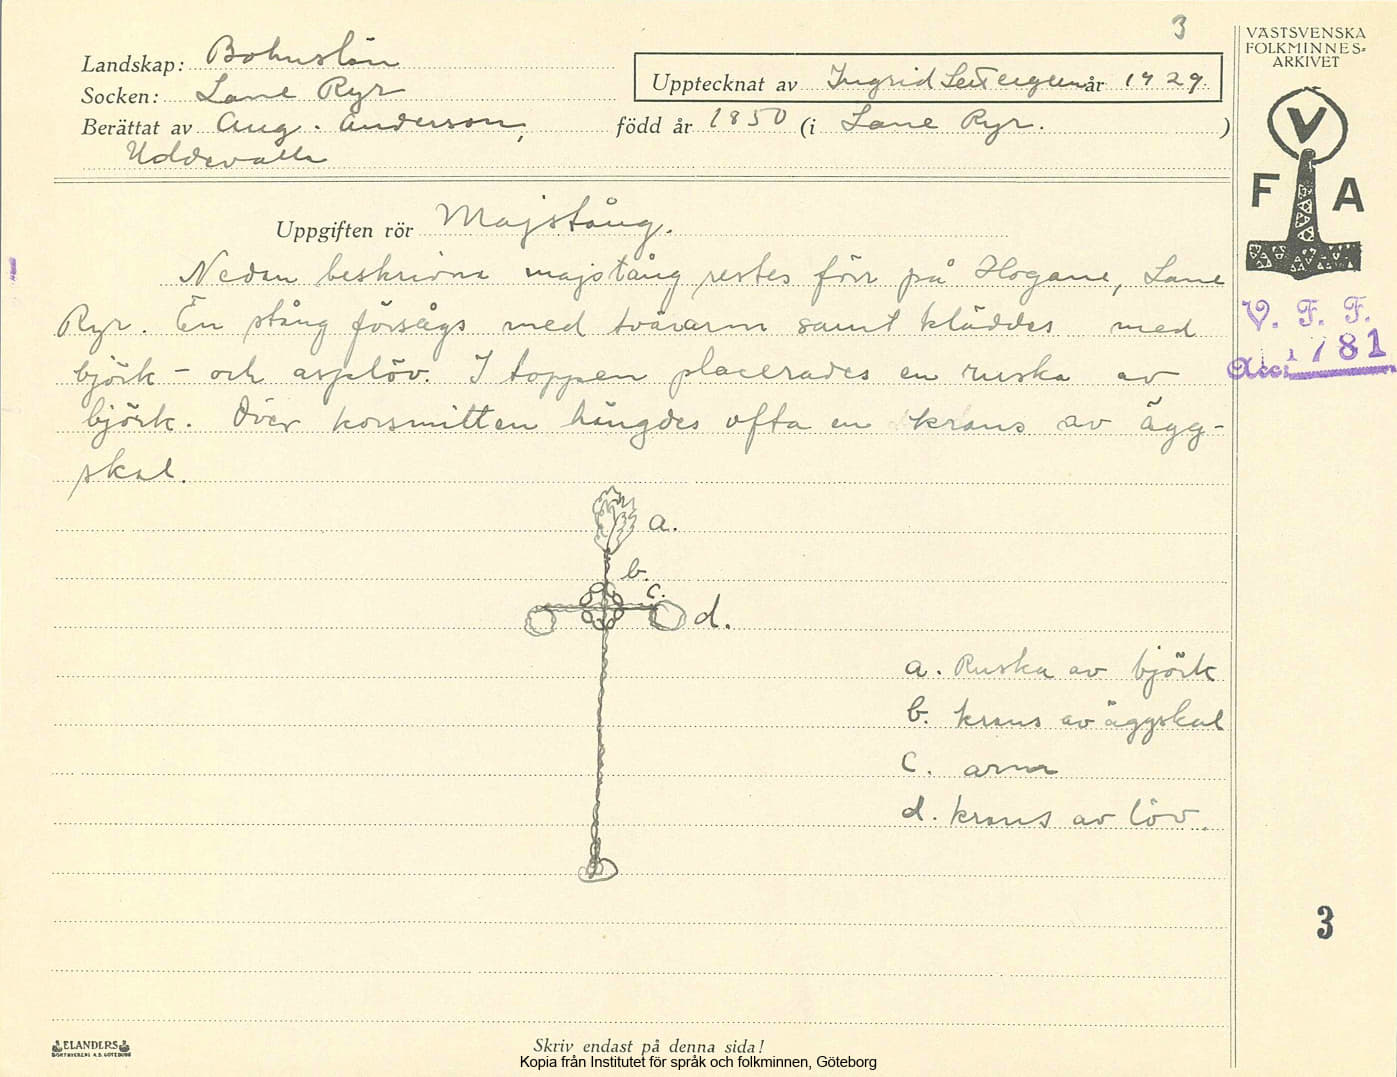 3
VÄSTSVENSKA
FOLKMINNES-
ARKIVET
Landskap: Bohuslän
Socken: Lane Ryr
Upptecknat av Ingrid år 1929.
Berättat av Aug. Anderson, född år 1850 (i Lane Ryr. )
Uddevalla
V
F A
Uppgiften rör Majstång.
Nedan beskrivna majstång restes förr på Hogane, Lane
Ryr. En stång försågs med tvärarm samt kläddes med
björk - och asplöv. I toppen placerades en ruska av
björk. Över korsmitten hängdes ofta en krans av ägg-
skal.
V. F. F.
Acc. 1781
a.
b.
c.
d.
a. Ruska av björk
b. krans av äggskal
c. arm
d. krans av löv.
3
ELANDERS
BOKTRYCKERI A.B. GÖTEBORG
Skriv endast på denna sida!
Kopia från Institutet för språk och folkminnen, Göteborg